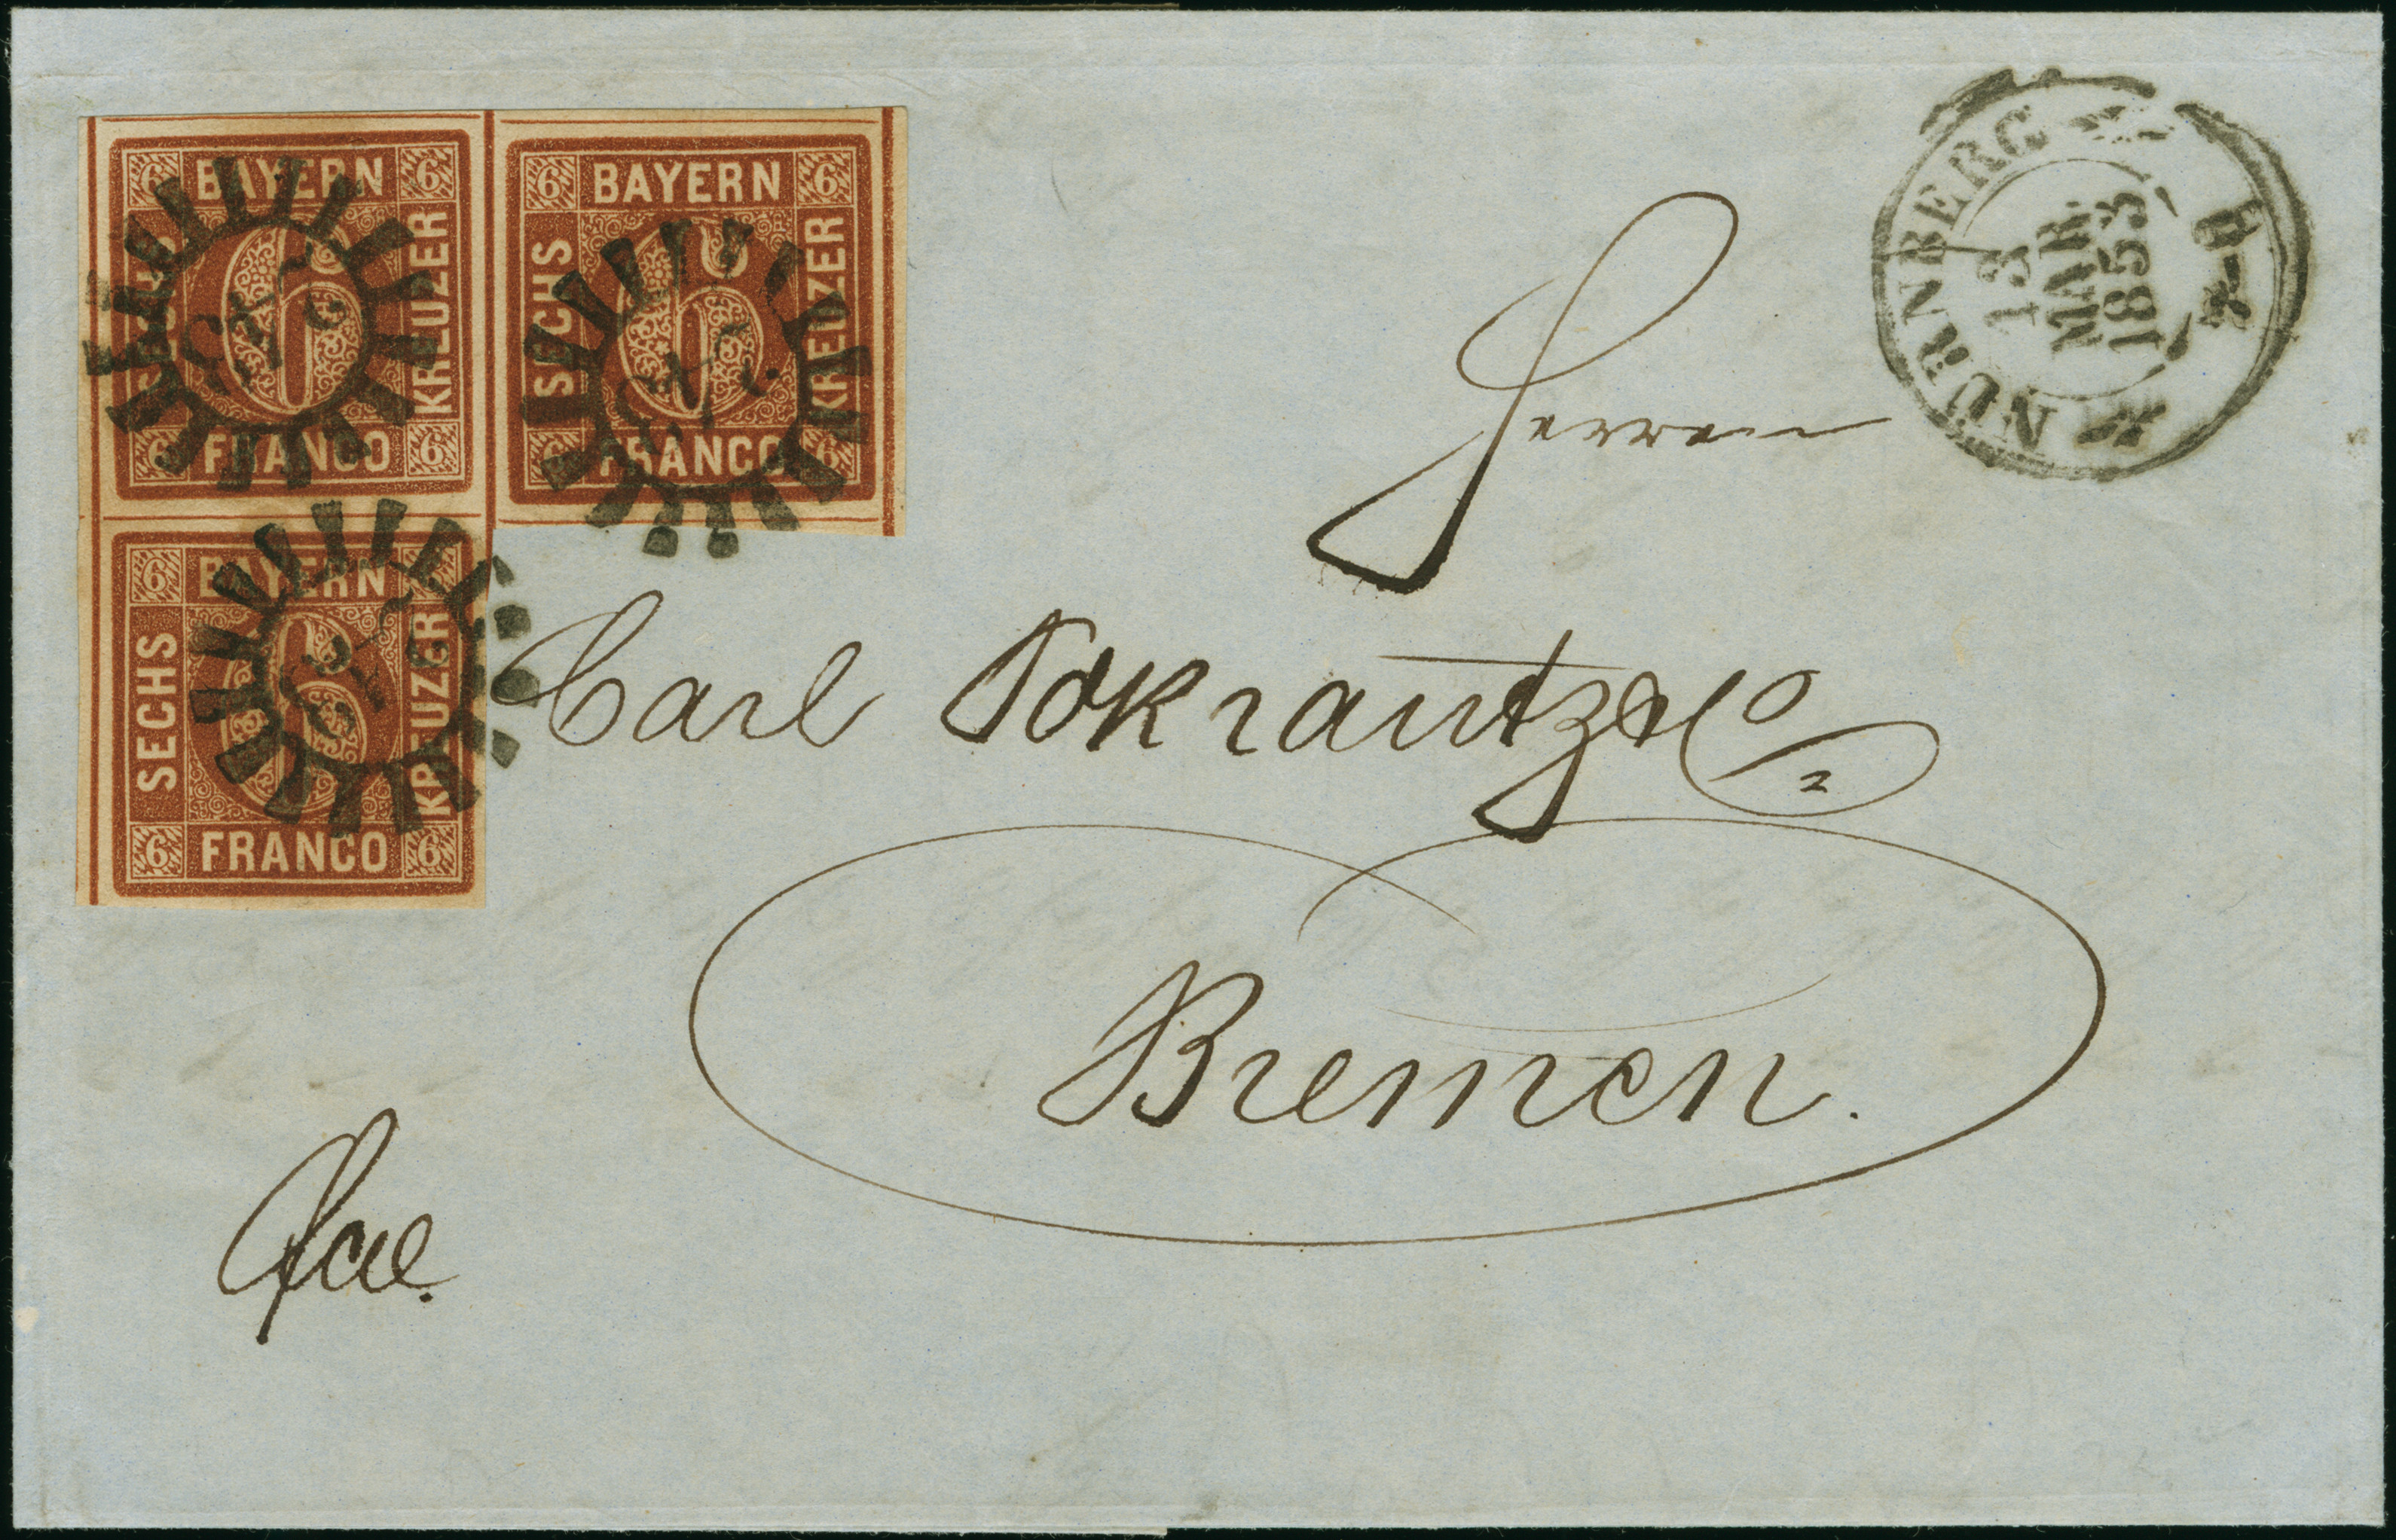 6 BAYERN 6
SECHS
KREUZER
6
6 FRANCO 6
6 BAYERN 6
SECHS
KREUZER
6
6 FRANCO 6
6 BAYERN 6
SECHS
KREUZER
6
6 FRANCO 6
NÜRNBERG
13
MAR.
1853
Herren
Carl Pokrantz & Co
Bremen.